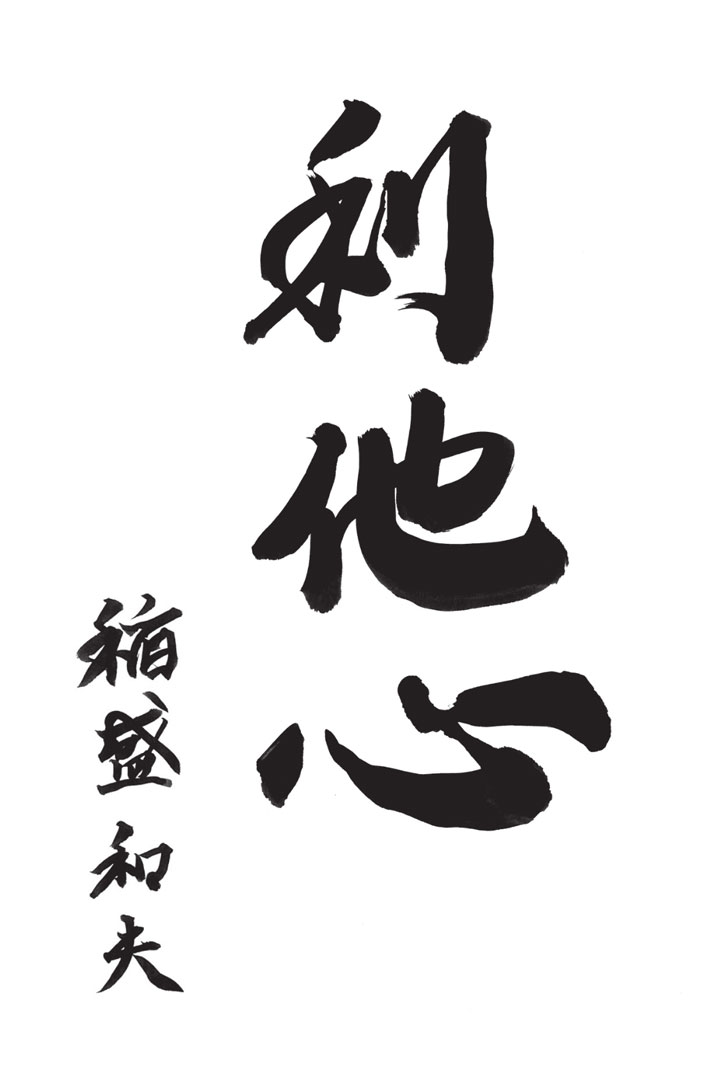 利他心
稲盛和夫